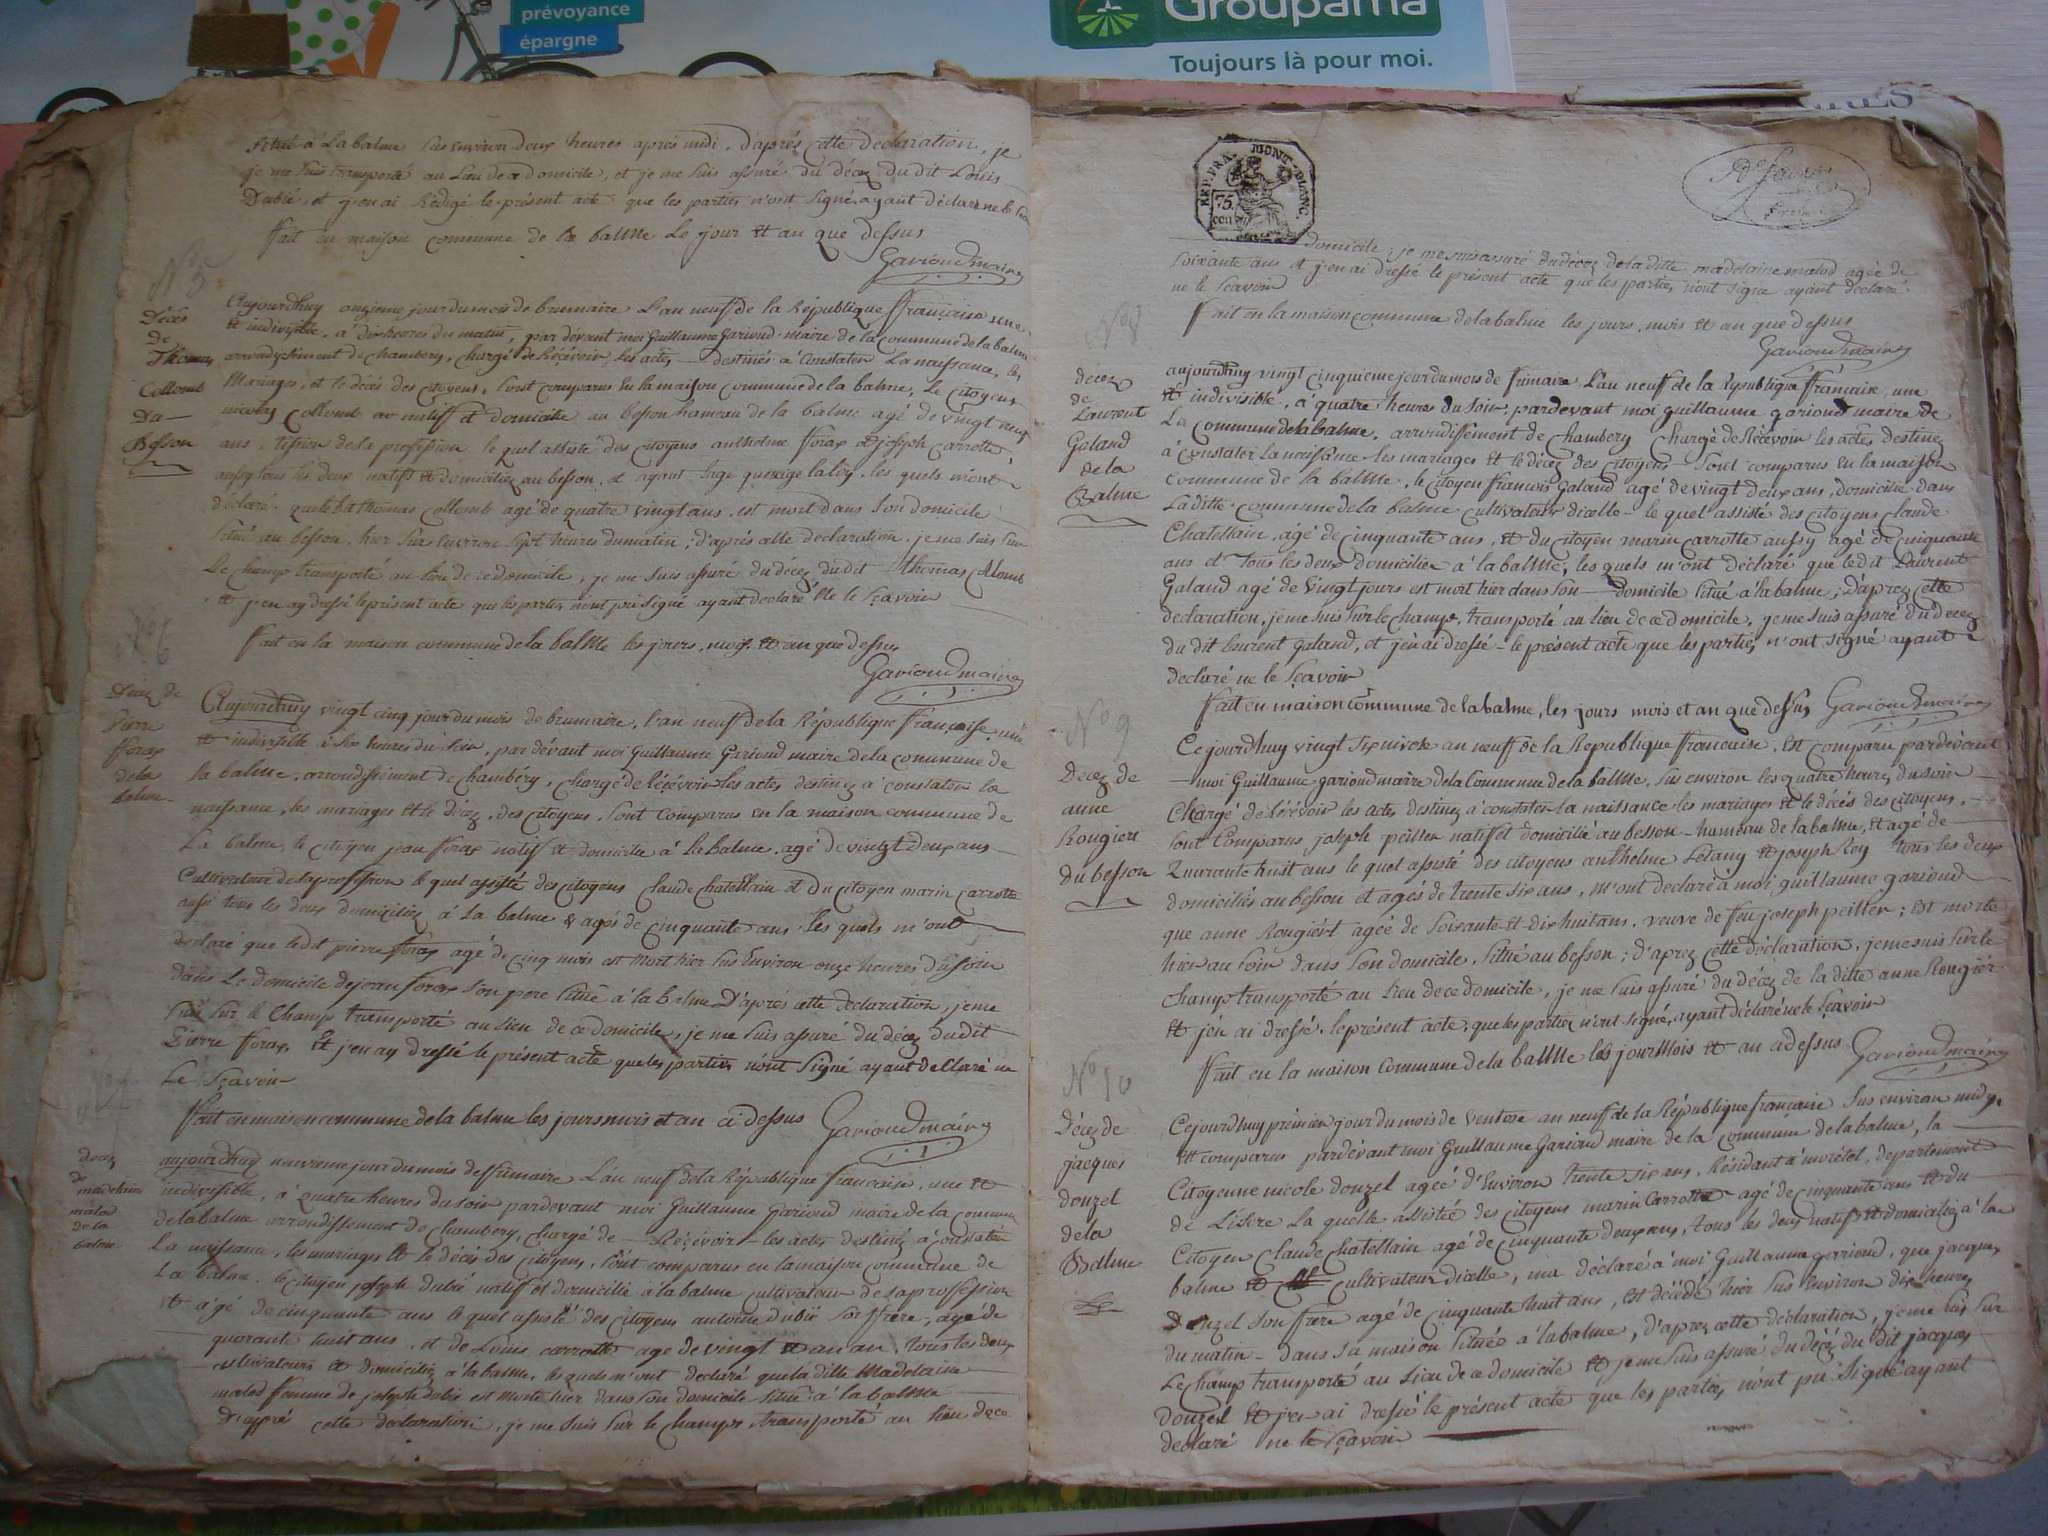 prévoyance
épargne
Groupama
Toujours là pour moi.
situé à La balme sus environ deux heures apres midi. d'après cette declaration, je
je me suis transporté au Lieu de ce domicile, et je me suis assuré du décez du dit Louis
Dubié, et j'en ai Rédigé le présent acte que les parties n'ont Signé ayant déclaré ne le
ffait en maison commune de la balme Le jour et an que dessus
Garioud maire
N° 5
Décès
De
Thomas
Collomb
Du
Besson
Aujourdhuy onzieme jour du mois de brumaire L'an neuff de la République ffrançaise une
et indivisible, a dix heures du matin, par devant moi Guillaume Garioud maire de la Commune de la balme
arrondissement de Chambery, chargé de Récévoir les actes destinés a Constater La naissance, les
Mariages, et le décés des citoyens, Sont comparus En la maison commune de la balme, Le citoyen
nicolas Collomb natiff et domicilié au besson hameau de la balme agé de vingt neuf
ans, tission de la profession le quel assisté des citoyens anthelme fforax et joseph carrotte
aussy tous les deux natiffs et domiciliez au besson, et ayant l'age qu'exige la loy, les quels m'ont
déclaré que le dit thomas collomb agé de quatre vingt ans est mort dans Son domicile
Situé au besson, hier Sus environ Sept heures du matin; d'après cette declaration, je me Suis Sur
Le Champ transporté au lieu de ce domicile, je me suis assuré du décez du dit thomas Collomb
et j'en ay dressé le présent acte que les parties n'ont pu Signé ayant declaré Ne le Sçavoir
ffait en la maison commune de la balme les jours, mois et an que dessus
Garioud maire
N° 6
Décez de
Pierre
fforax
de la
balme
Aujourdhuy vingt cinq jour du mois de brumaire, l'an neuff de la République ffrançaise, une
et indivisible à Six heures du Soir, par dévant moi Guillaume Garioud maire de la commune de
la balme, arrondissement de Chambéry, chargé de Récévoir les actes destinez a constater la
naissance, les mariages et le décez, des citoyens, Sont comparus en la maison commune de
La balme, le citoyen jean fforax natiff et domicilié à la balme, agé de vingt deux ans
Cultivateur de la profession le quel assisté des citoyens Claude Chatellain et du citoyen marin Carrotte
aussi tous les deux domiciliez à la balme & agés de cinquante ans Les quels m'ont
déclaré que le dit pierre fforax agé de cinq mois est Mort hier Sus Environ onze heures du Soir
dans Le domicile de jean fforax Son pere Situé à la balme D'après cette declaration, je me
Suis Sur le Champ transporté au Lieu de ce domicile, je me Suis assuré du décez du dit
Pierre fforax, Et j'en ay dressé le présent acte que les parties n'ont Signé ayant declaré ne
Le Sçavoir
ffait en maison commune de la balme les jours mois et an ci dessus
Garioud maire
Décez
de
madelaine
malod
de la
balme
aujourdhuy neuvieme jour du mois de ffrimaire L'an neuff de la République francaise, une et
indivisible, à Quatre heures du Soir pardevant moi Guillaume Garioud maire de la commune
de la balme arrondissement de Chambéry, chargé de Reçévoir les actes destinés à constater
La naissance, les mariages Et le décés des citoyens, Sont comparus en la maison commune de
La balme, le citoyen joseph dubié natiff et domicilié à la balme cultivateur de sa profession
et agé de cinquante ans le quel assisté des citoyens antoine dubié Son ffrère, agé de
quarante huit ans, et de Louis carrotte agé de vingt et un an, tous les deux
cultivateurs et domiciliez à la balme, les quels m'ont declaré que la ditte Madelaine
malod ffemme de joseph dubié est morte hier dans Son domicile Situé à la balme
D'apprés cette declaration, je me Suis Sur le Champ transporté au lieu de ce
REP. FRA. MONT-BLANC.
75
cen
domicile, je me suis assuré du décez de la ditte madelaine malod agée de
Soixante ans et j'en ai dressé le présent acte que les parties n'ont signé ayant déclaré
ne le sçavoir
ffait en la maison commune de la balme les jours, mois et an que dessus
Garioud maire
N° 8
décez
de
Laurent
Galaud
de la
Balme
aujourdhuy vingt cinquieme jour du mois de frimaire, L'an neuff de la République ffrançaise, une
et indivisible, à quatre heures du Soir, pardevant moi guillaume garioud maire de
La commune de la balme, arrondissement de Chambery chargé de Récévoir les actes destinez
à Constater la naissance les mariages et le décez des citoyens Sont comparus En la maison
commune de la balme, le citoyen francois Galaud agé de vingt deux ans, domicilié dans
La ditte commune de la balme cultivateur dicelle le quel assisté des citoyens claude
Chatellain, agé de cinquante ans, et du citoyen marin carrotte aussy agé de cinquante
ans et Tous les deux domiciliez à la balme, les quels m'ont déclaré que le dit Laurent
Galaud agé de Vingt jours est mort hier dans Son domicile Situé à la balme, d'aprez cette
declaration, je me suis Sur le champ, transporté au lieu de ce domicile, je me suis assuré du décez
du dit laurent Galaud, et j'en ai dressé le présent acte que les parties, n'ont signé ayant
declaré ne le Sçavoir
ffait en maison commune de la balme, les jours mois et an que dessus Garioud maire
N° 9
Décez de
anne
Rougier
du besson
Ce jourdhuy vingt Six nivose an neuff de la République francaise, Est Comparu pardevant
moi Guillaume garioud maire de la Commune de la balme, Sus environ les quatre heures du Soir
Chargé de Récévoir les actes destinez à constater la naissance les mariages et le décés des citoyens,
Sont Comparus joseph peiller natif et domicilié au besson hameau de la balme, et agé de
Quarante huit ans le quel assisté des citoyens anthelme Ledany et joseph Rey tous les deux
domiciliés au besson et agés de trente six ans, m'ont declaré à moi guillaume garioud
que anne Rougiert agée de Soixante et dix huit ans, veuve de feu joseph peiller; est morte
hier au Soir dans Son domicile, Situé au besson; d'aprez cette déclaration, je me suis Sur le
Champ transporté au Lieu de ce domicile, je me suis assuré du décez de la ditte anne Rougier
et j'en ai dressé, le présent acte, que les parties n'ont signé, ayant déclaré ne le sçavoir
ffait en la maison commune de la balme les jour Mois et an ci dessus Garioud maire
N° 10
Décez de
jacques
douzel
de la
Balme
Ce jourdhuy prémier jour du mois de ventose an neuff de la République française Sus environ midy,
est comparus pardévant moi Guillaume Garioud maire de la commune de la balme, la
Citoyenne nicole douzel agée d'Environ trente Six ans, Résidant à morétel, departement
de L'isére La quelle assistée des citoyens marin Carrotte agé de cinquante ans et du
Citoyen Claude Chatellain agé de cinquante deux ans, tous les deux natiff et domiciliez à la
balme et cultivateur dicelle, ma déclaré à moi Guillaume garioud, que jacques
douzel Son ffrere agé de cinquante huit ans, est décédé hier Sus Environ dix heures
du matin dans Sa maison Située à la balme, d'aprez cette déclaration, je me suis sur
Le champ transporté au Lieu de ce domicile et je me suis assuré du décez du dit jacques
douzel et j'en ai dressé le présent acte que les parties n'ont pu Signé ayant
declaré ne le Sçavoir